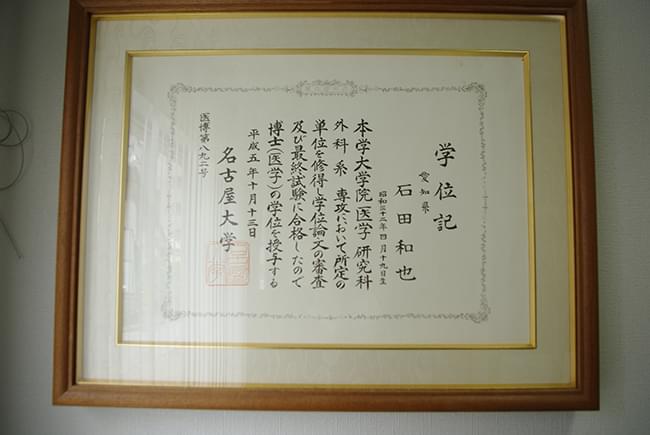 学位記
愛知県
石田和也
昭和三十二年四月十九日生
本学大学院医学研究科
外科系 専攻において所定の
単位を修得し学位論文の審査
及び最終試験に合格したので
博士(医学)の学位を授与する
平成五年十月十三日
名古屋大学
医博第八九二号